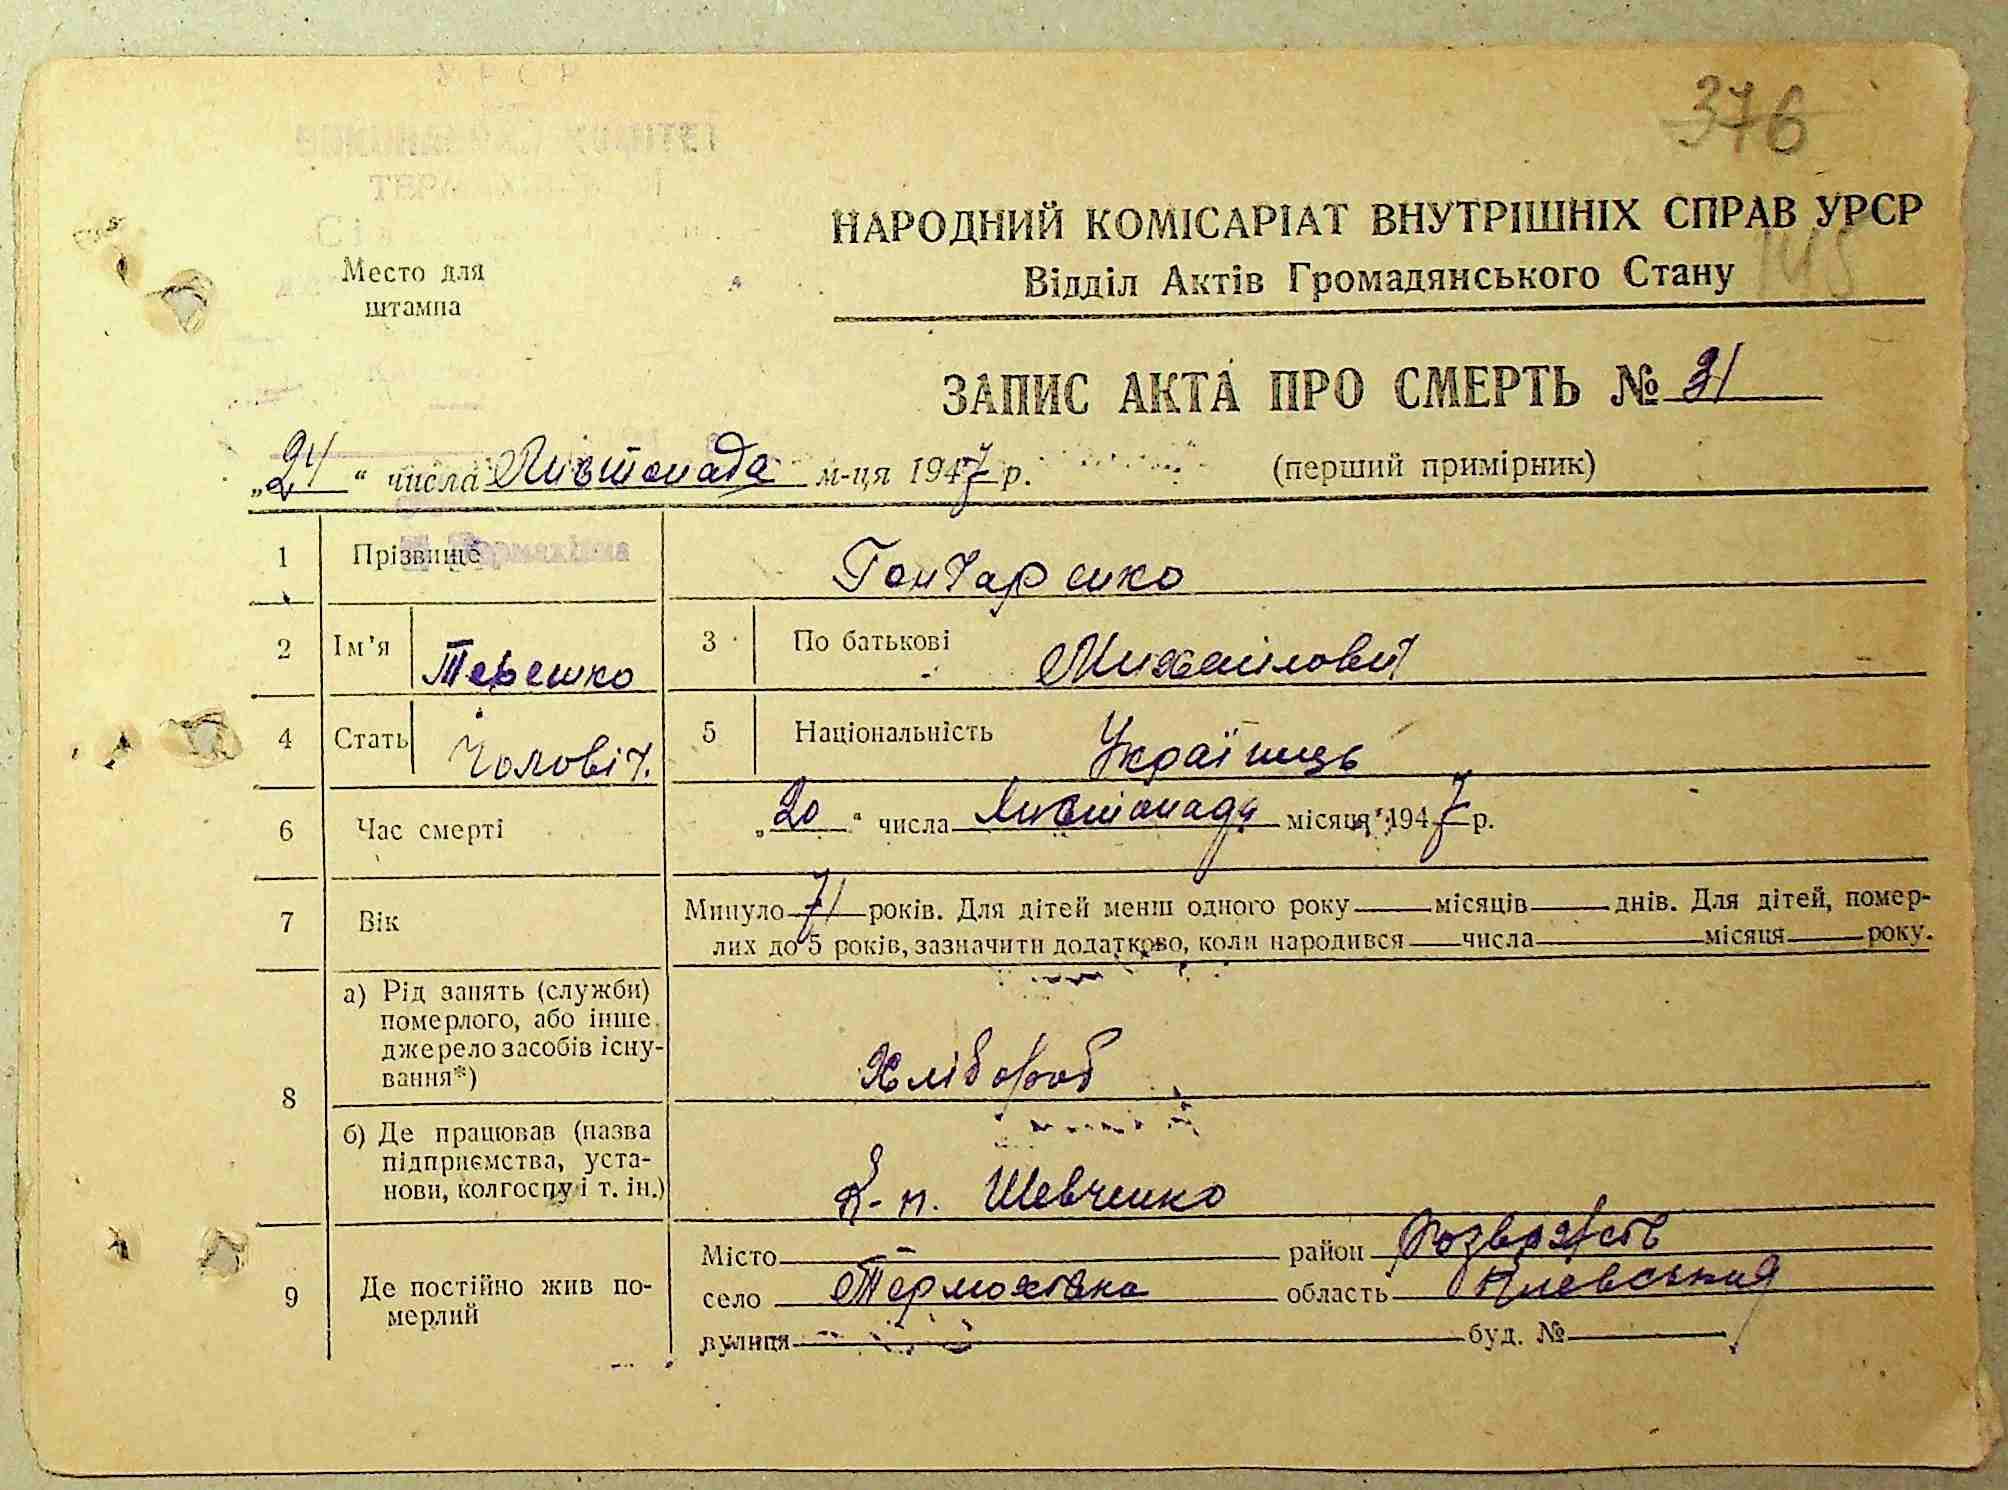 376
НАРОДНИЙ КОМІСАРІАТ ВНУТРІШНІХ СПРАВ УРСР
145
Відділ Актів Громадянського Стану
Место для
штампа
ЗАПИС АКТА ПРО СМЕРТЬ № 31
„24“ числа Листопада м-ця 1947 р. (перший примірник)
1 Прізвище Гончаренко
2 Ім'я Терешко 3 По батькові Михайлович
4 Стать Чоловіч. 5 Національність Українець
6 Час смерті „20“ числа Листопада місяця 1947 р.
7 Вік Минуло 71 років. Для дітей менш одного року місяців днів. Для дітей, помер-
лих до 5 років, зазначити додатково, коли народився числа місяця року.
8 а) Рід занять (служби)
померлого, або інше
джерело засобів існу-
вання*) Хлібороб
б) Де працював (назва
підприємства, уста-
нови, колгоспу і т. ін.) К-п. Шевченко
9 Де постійно жив по-
мерлий
Місто — район Розважів
село Термохівка область Київська
вулиця буд. №